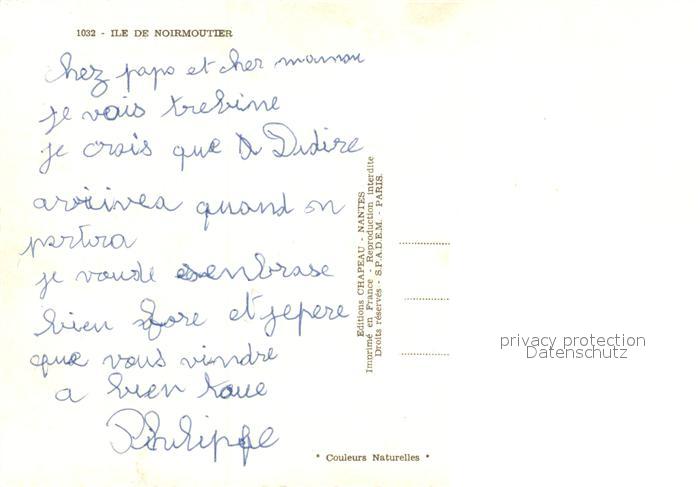 1032 - ILE DE NOIRMOUTIER
chez papa et cher maman
je vais trebine
je crais que Didire
arriivea quand on
partira
je voude enbrase
bien fore et jepere
que vous vindre
a bien toue
Philippe
Editions CHAPEAU - NANTES
Imprimé en France - Reproduction interdite
Droits réservés - S.P.A.D.E.M. - PARIS.
privacy protection
Datenschutz
* Couleurs Naturelles *